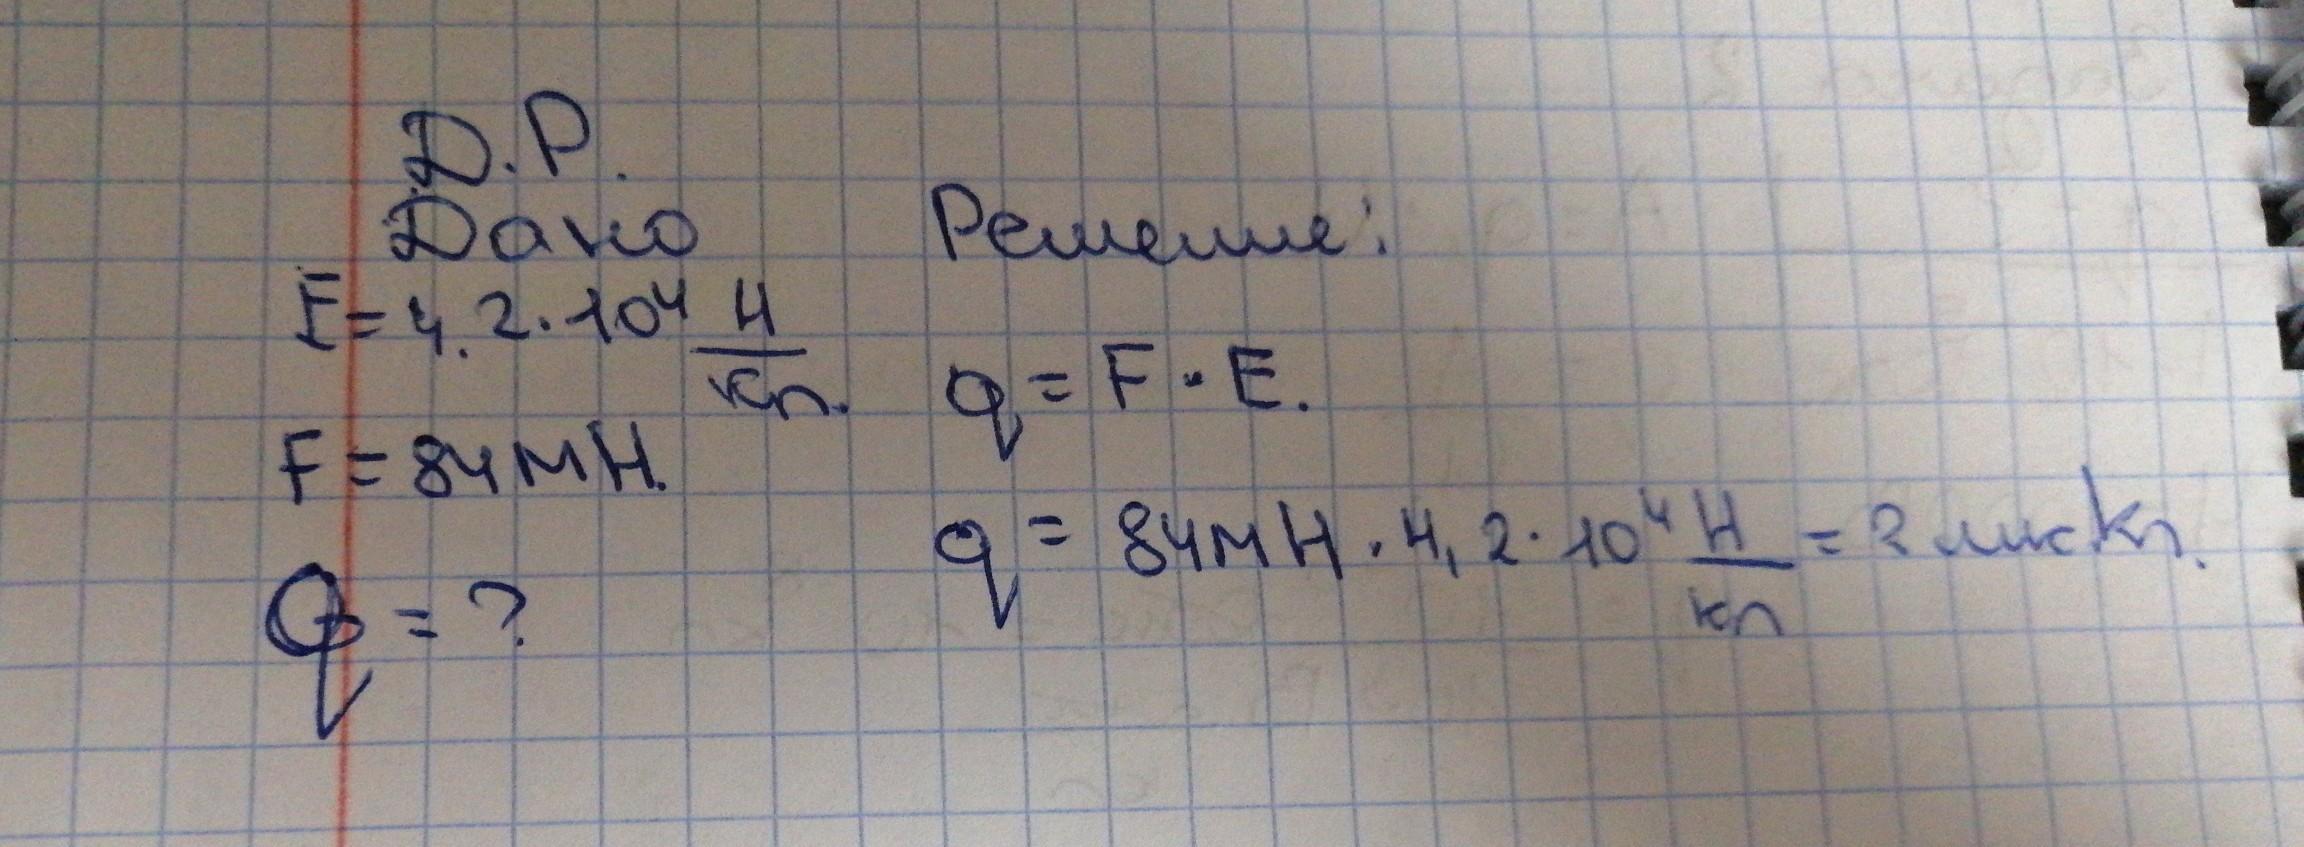 Д.Р.
Дано
E = 4,2·10⁴ Н/Кл.
F = 84 мН.
q = ?
Решение:
q = F · E.
q = 84 мН · 4,2·10⁴ Н/кл = 2 мкКл.